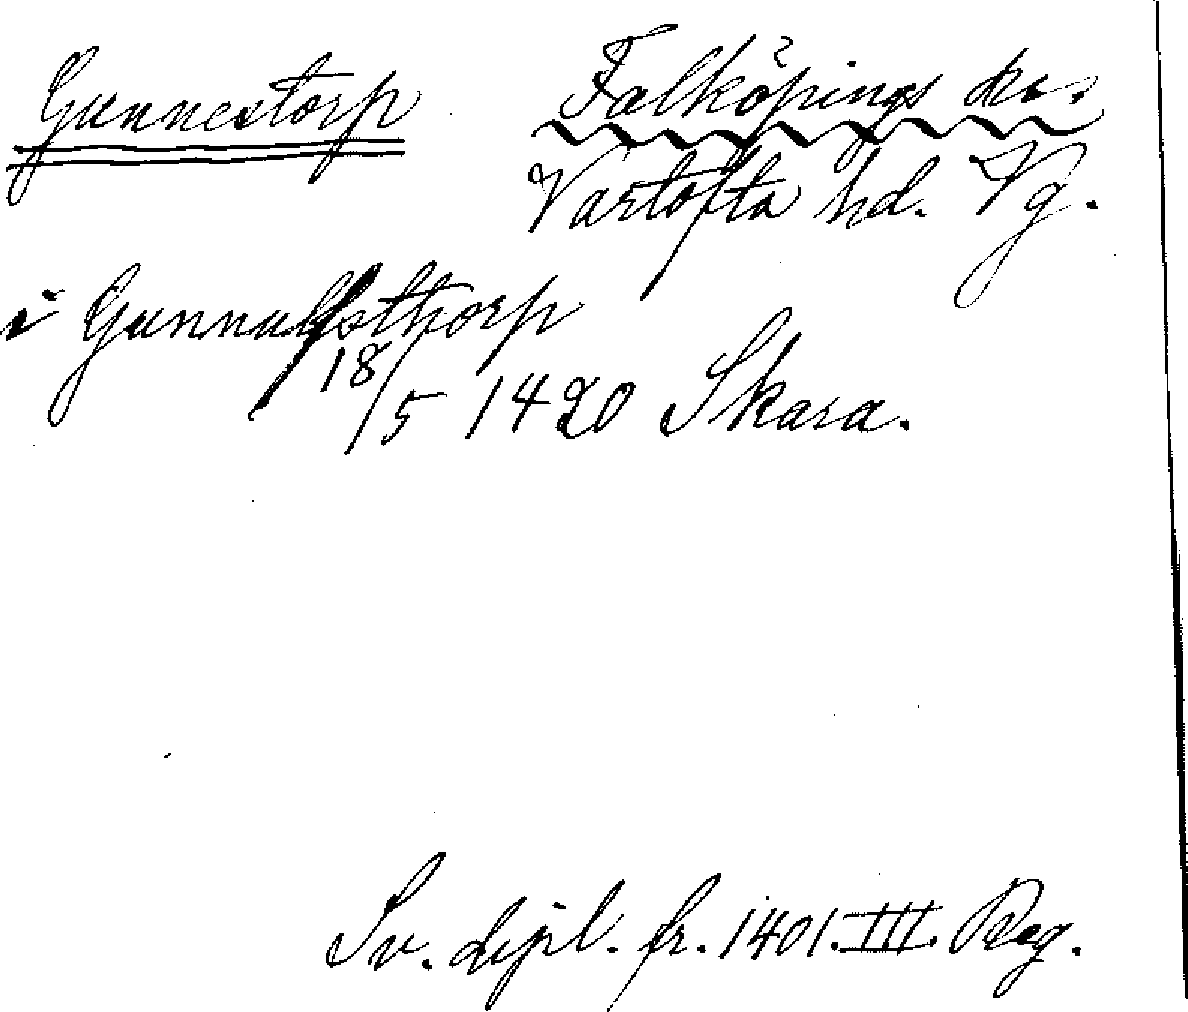 Gunnestorp Falköpings ks.
Vartofta hd. Vg.
i Gunnulfsthorp
18/5 1420 Skara.
Sv. dipl. fr. 1401. III. Reg.